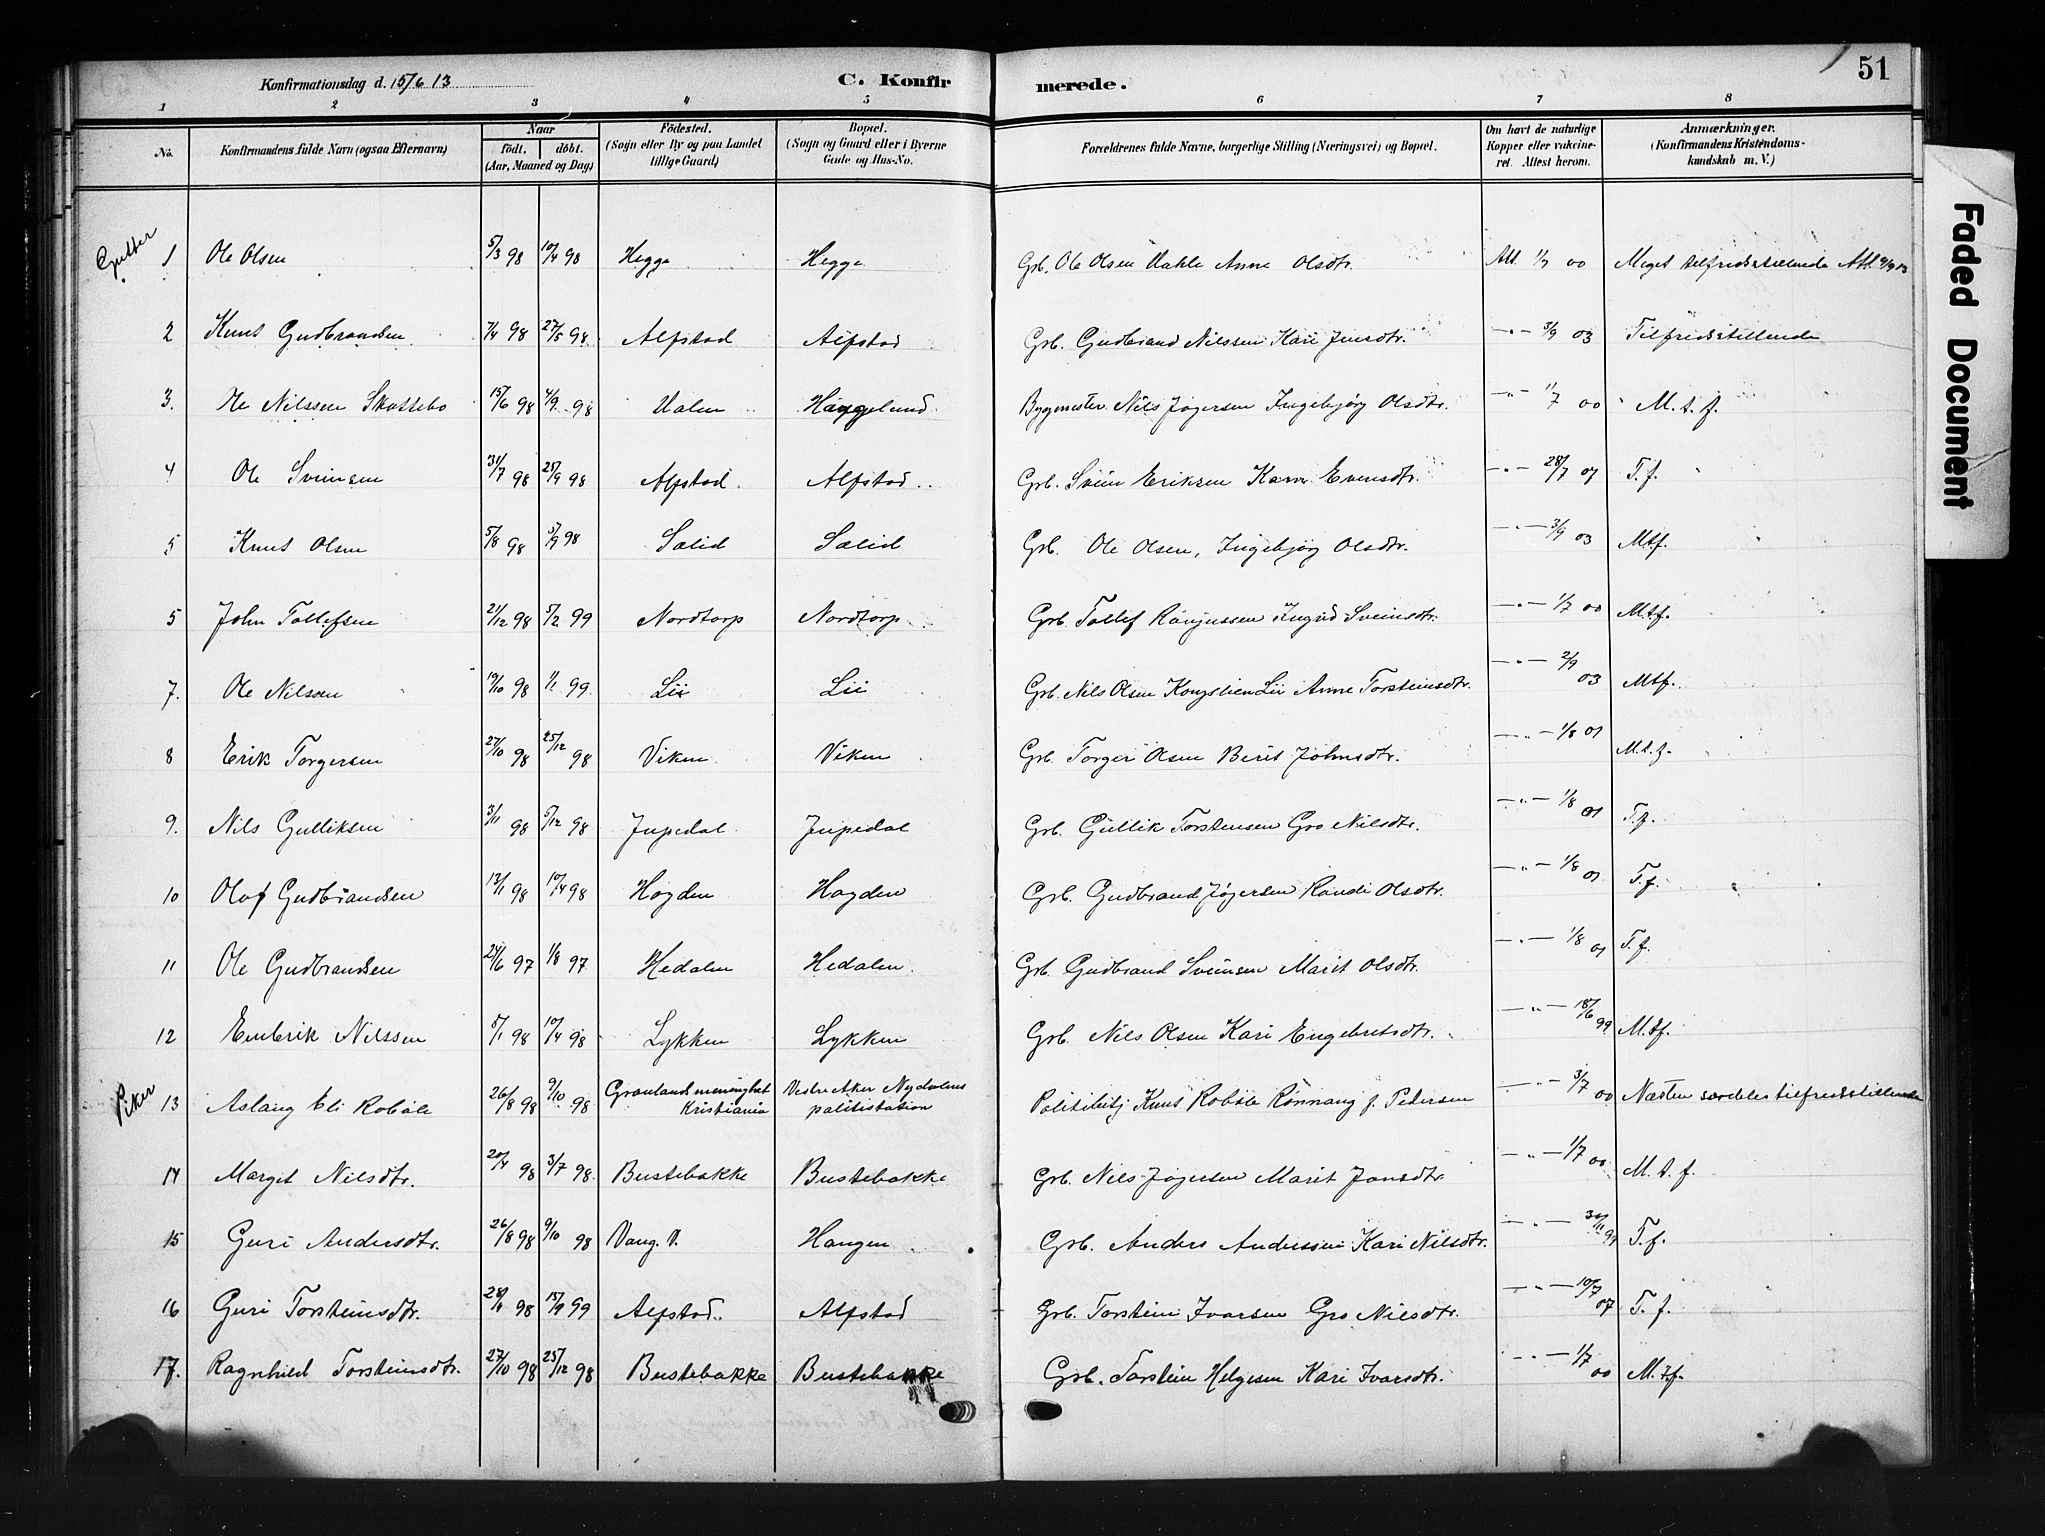 Konfirmationsdag d. 15/6 13
C. Konfirmerede.
51
1 2 3 4 5 6 7 8
No. Konfirmandens fulde Navn (ogsaa Efternavn) Naar født. døbt. (Aar, Maaned og Dag) Fødested. (Sogn eller By og paa Landet tillige Gaard) Bopæl. (Sogn og Gaard eller i Byerne Gade og Hus-No. Forældrenes fulde Navne, borgerlige Stilling (Næringsvei) og Bopæl. Om havt de naturlige Kopper eller vaccineret. Attest herom. Anmærkninger. (Konfirmandens Kristendomskundskab m. V.)
Gutter
1 Ole Olsen 5/3 98 10/4 98 Hegge Hegge Grb. Ole Olsen Anne Olsdtr. Att. 1/7 00 Meget tilfredsstillende Att.
2 Knut Gudbrandsen 7/4 98 27/5 98 Alfstad Alfstad Grb. Gudbrand Nilssen Kari Jensdtr. —"— 3/9 03 Tilfredsstillende
3. Ole Nilssen Skattebo 15/6 98 4/9 98 Ualen Haugelund Bygmester Nils Jøgersen Ingebjørg Olsdtr. —"— 1/7 00 M. t. f.
4 Ole Sveinsen 31/7 98 25/9 98 Alfstad Alfstad Grb. Svein Eriksen Karen Evensdtr. —"— 28/7 07 T. f.
5 Knut Olsen 5/8 98 5/9 98 Sælid Sælid Grb. Ole Olsen, Ingebjørg Olsdtr. —"— 3/9 03 Mtf.
5 John Tollefsen 21/12 98 5/2 99 Nordtorp Nordtorp Grb. Tollef Ranjussen Ingrid Sveinsdtr. —"— 1/7 00 Mtf.
7. Ole Nilssen 19/10 98 1/1 99 Lii Lii Grb. Nils Olsen Kongslien Lii Anne Torsteinsdtr. —"— 2/9 03 Mtf.
8 Erik Torgersen 27/10 98 25/12 98 Viken Viken Grb. Torger Olsen Berit Johnsdtr. —"— 1/8 01 M. t. f.
9. Nils Gulliksen 3/11 98 5/12 98 Jupedal Jupedal Grb. Gullik Torstensen Gro Nilsdtr. —"— 1/8 01 T. f.
10 Olaf Gudbrandsen 13/1 98 10/4 98 Høgden Høgden Grb. Gudbrand Jøgersen Randi Olsdtr. —"— 1/8 01 T. f.
11 Ole Gudbrandsen 24/6 97 1/8 97 Hedalen Hedalen Grb. Gudbrand Sveinsen Marit Olsdtr. —"— 1/8 01 T. f.
12 Embrik Nilssen 5/1 98 10/4 98 Lykken Lykken Grb. Nils Olsen Kari Engebretsdtr. —"— 18/6 99 M.tf.
Piker
13 Aslaug Eli Robøle 26/8 98 9/10 98 Grønland menighet Kristiania Vestre Aker Nydalens politistation Politibetj Knut Robøle Rønnaug f. Pedersen —"— 3/7 00 Næsten særdeles tilfredsstillende
14 Margit Nilsdtr. 20/4 98 3/7 98 Bustebakke Bustebakke Grb. Nils Jøgersen Marit Jonsdtr. —"— 1/7 00 M. t. f.
15 Guri Andersdtr. 26/8 98 9/10 98 Vang. V. Haugen Grb. Anders Anderssen Kari Nilsdtr. —"— 30/11 99 T. f.
16 Guri Torsteinsdtr. 98 99 Alfstad Alfstad Grb. Torstein Ivarsen Gro Nilsdtr. —"— 10/7 07 T. f.
17. Ragnhild Torsteinsdtr. 27/10 98 25/12 98 Bustebakke Bustebakke Grb. Torstein Helgesen Kari Ivarsdtr. —"— 1/7 00 M.tf.
Faded Document